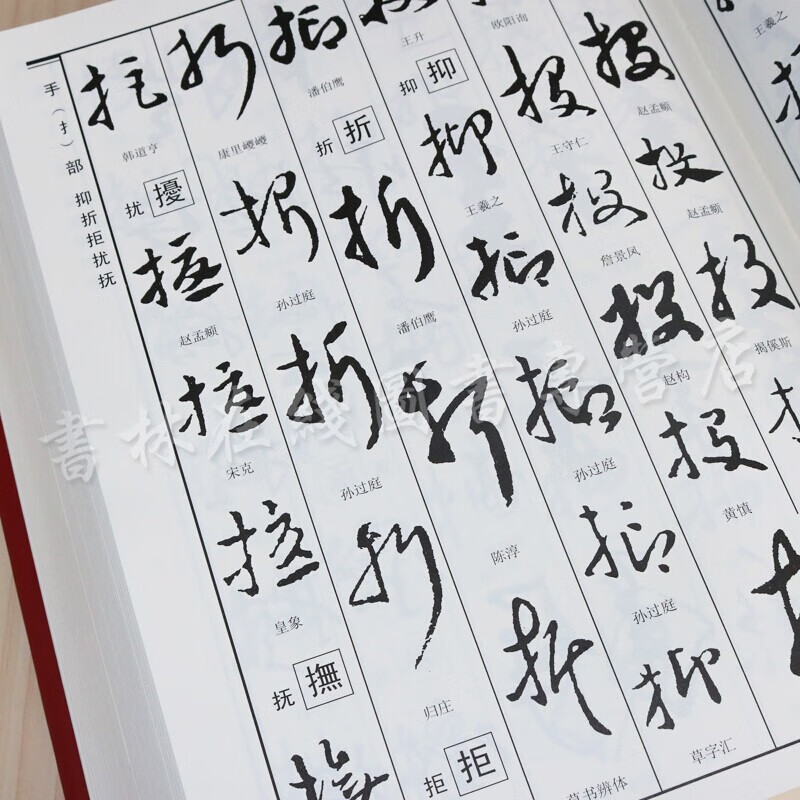 王羲之
投
赵孟頫
投
赵孟頫
投
揭傒斯
欧阳询
投
王守仁
投
詹景凤
投
赵构
投
黄慎
王升
抑 抑
抑
王羲之
抑
孙过庭
抑
孙过庭
抑
孙过庭
抑
草字汇
抑
潘伯鹰
折 折
折
潘伯鹰
折
陈淳
折
草书辨体
折
康里巎巎
折
孙过庭
折
孙过庭
折
归庄
拒 拒
拒
韩道亨
扰 擾
擾
赵孟頫
擾
宋克
擾
皇象
抚 撫
手（扌）部 抑折拒扰抚
書林在綫圖書專營店